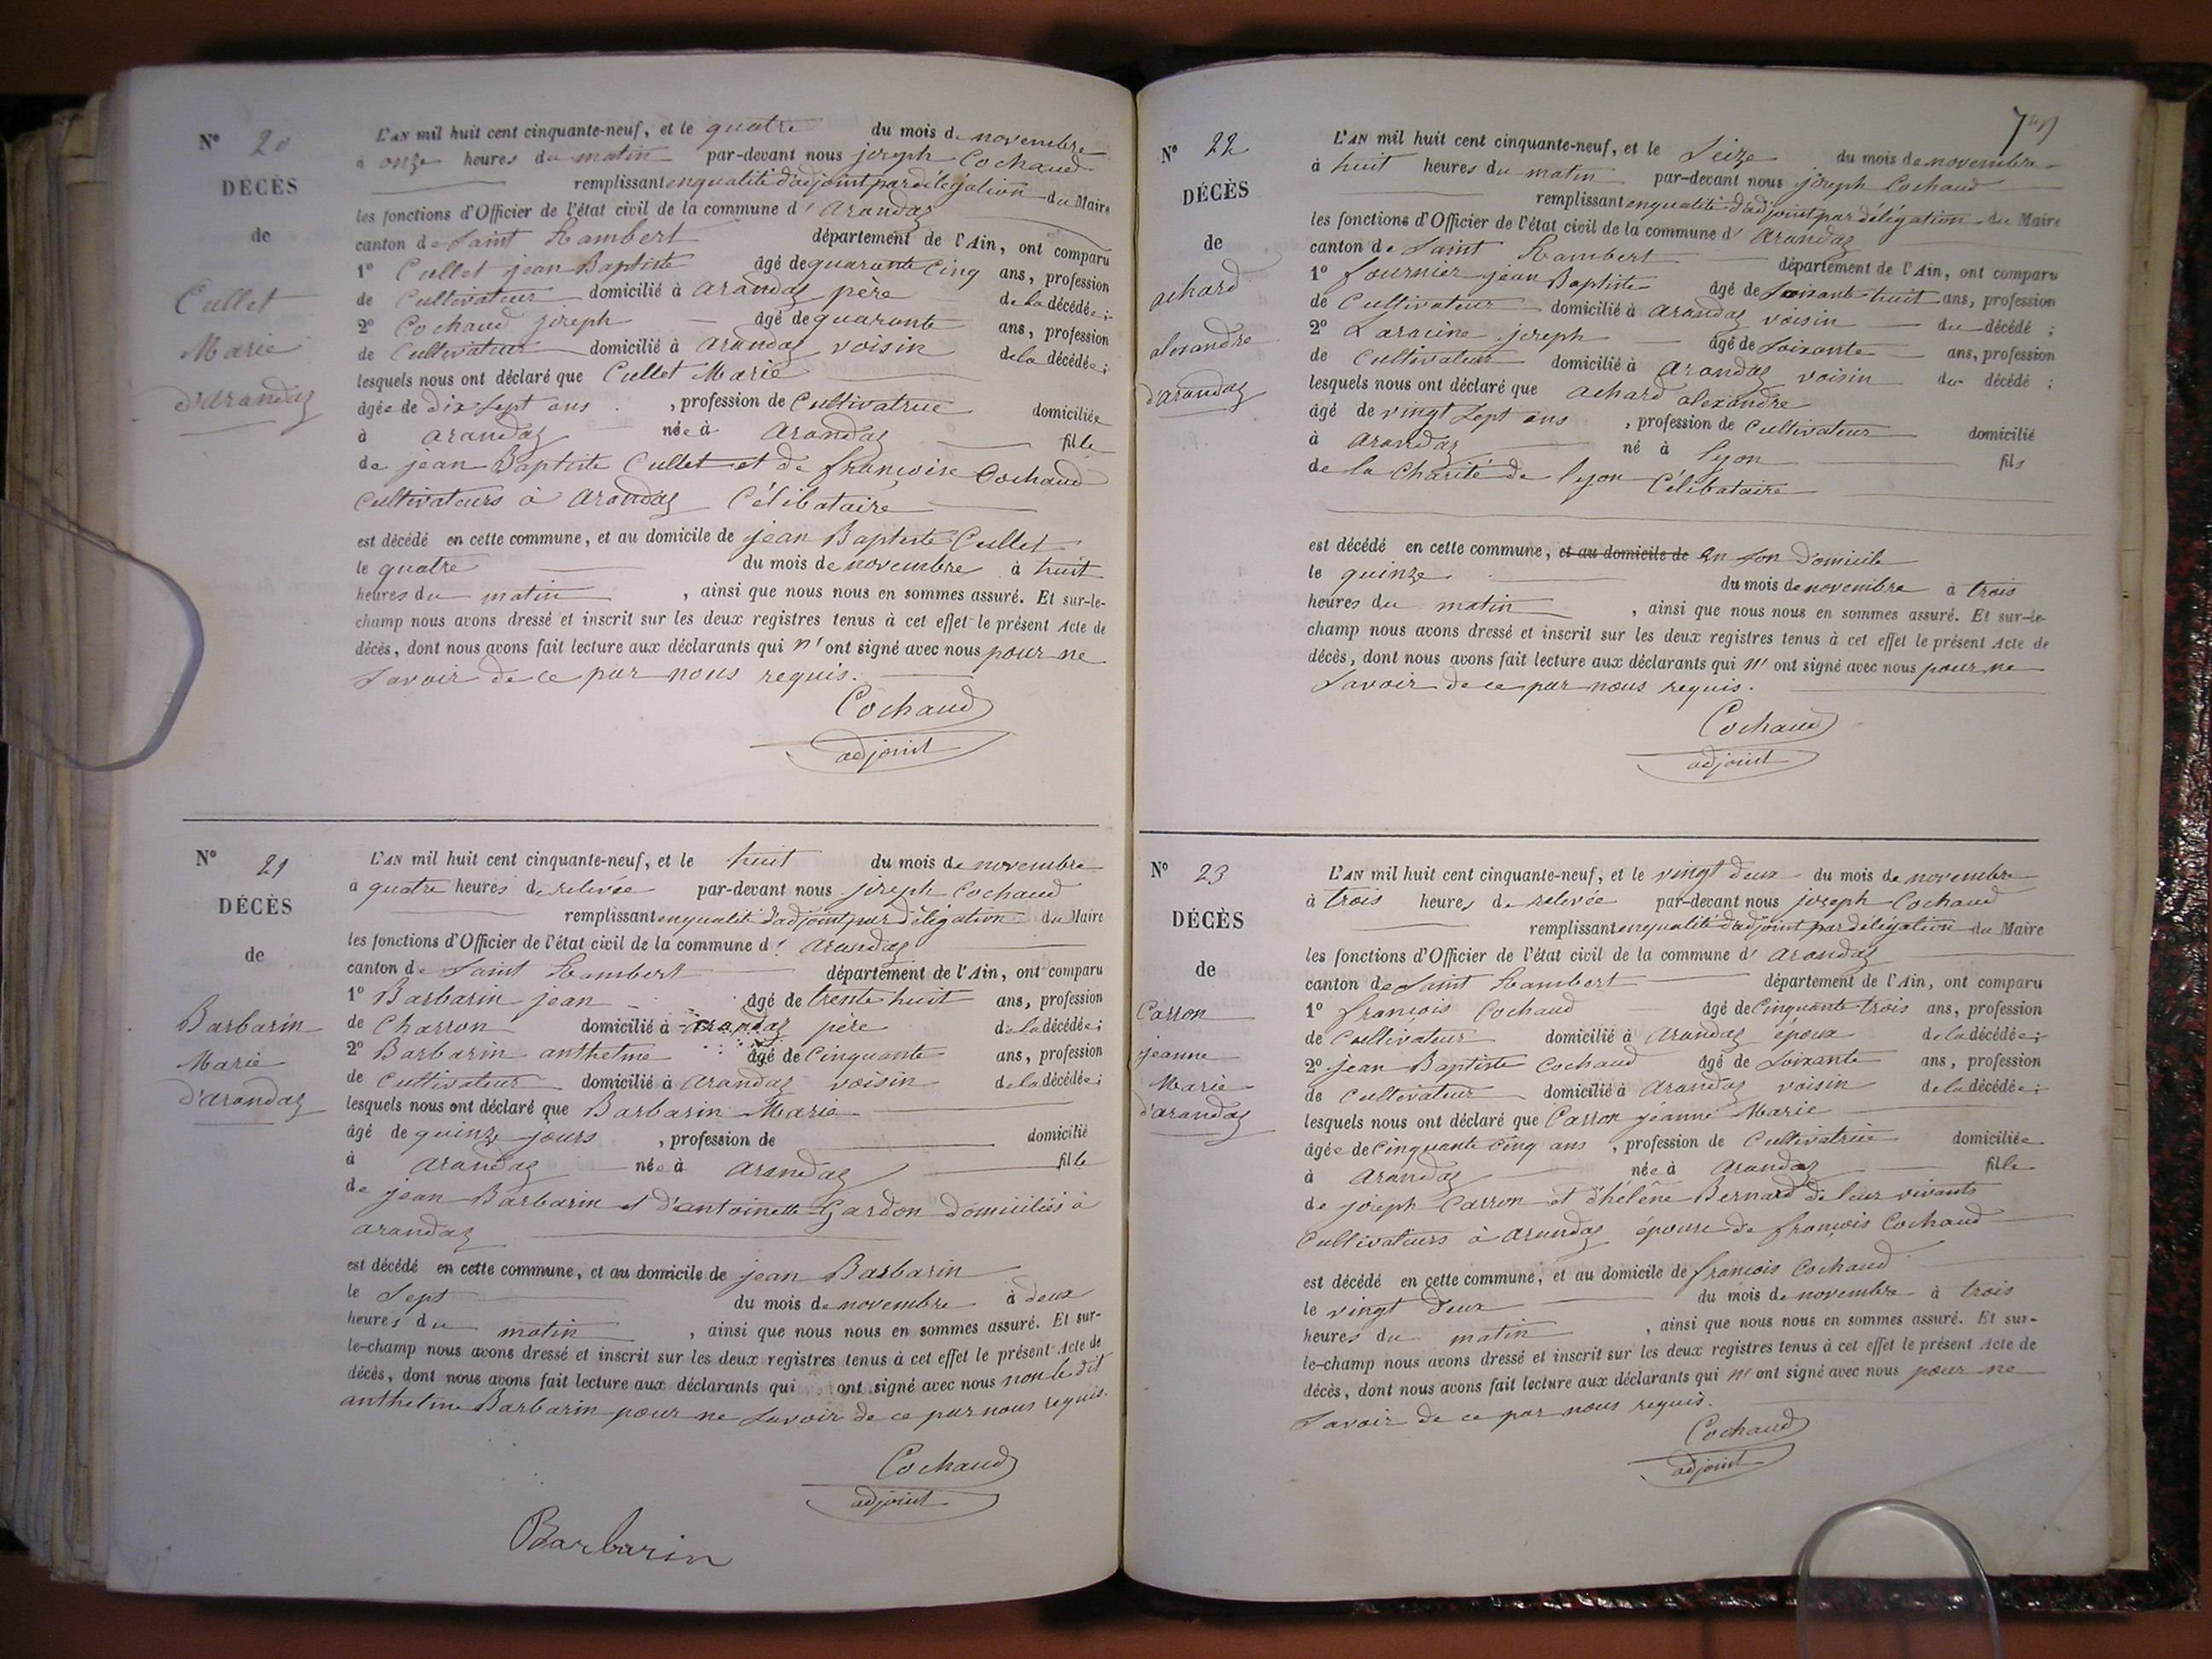 N° 20
DÉCÈS
de
Cullet
Marie
d'arandaz
L'AN mil huit cent cinquante-neuf, et le quatre du mois de novembre
à onze heures du matin par-devant nous joseph Cochaud
remplissant en qualité d'adjoint par délégation du Maire
les fonctions d'Officier de l'état civil de la commune d'arandaz
canton de Saint Rambert département de l'Ain, ont comparu
1° Cullet jean Baptiste âgé de quarante cinq ans, profession
de Cultivateur domicilié à arandaz père de la décédée;
2° Cochaud joseph âgé de quarante ans, profession
de Cultivateur domicilié à arandaz voisin de la décédée;
lesquels nous ont déclaré que Cullet Marie
âgée de dix sept ans, profession de Cultivatrice domiciliée
à arandaz née à arandaz fille
de jean Baptiste Cullet et de françoise Cochaud
Cultivateurs à arandaz Célibataire
est décédé en cette commune, et au domicile de jean Baptiste Cullet
le quatre du mois de novembre à huit
heures du matin, ainsi que nous nous en sommes assuré. Et sur-le-
champ nous avons dressé et inscrit sur les deux registres tenus à cet effet le présent Acte de
décès, dont nous avons fait lecture aux déclarants qui n'ont signé avec nous pour ne
Savoir de ce par nous requis.
Cochaud
adjoint
N° 21
DÉCÈS
de
Barbarin
Marie
d'arandaz
L'AN mil huit cent cinquante-neuf, et le huit du mois de novembre
à quatre heures de relevée par-devant nous joseph Cochaud
remplissant en qualité d'adjoint par délégation du Maire
les fonctions d'Officier de l'état civil de la commune d'arandaz
canton de Saint Rambert département de l'Ain, ont comparu
1° Barbarin jean âgé de trente huit ans, profession
de Charron domicilié à arandaz père de la décédée;
2° Barbarin anthelme âgé de Cinquante ans, profession
de Cultivateur domicilié à arandaz voisin de la décédée;
lesquels nous ont déclaré que Barbarin Marie
âgé de quinze jours, profession de domicilié
à arandaz née à arandaz fille
de jean Barbarin et d'antoinette Gardon domiciliés à
arandaz
est décédé en cette commune, et au domicile de jean Barbarin
le Sept du mois de novembre à deux
heures du matin, ainsi que nous nous en sommes assuré. Et sur-
le-champ nous avons dressé et inscrit sur les deux registres tenus à cet effet le présent Acte de
décès, dont nous avons fait lecture aux déclarants qui ont signé avec nous non le dit
anthelme Barbarin pour ne Savoir de ce par nous requis.
Cochaud
adjoint
Barbarin
N° 22
DÉCÈS
de
achard
alexandre
d'arandaz
L'AN mil huit cent cinquante-neuf, et le Seize du mois de novembre
à huit heures du matin par-devant nous joseph Cochaud
remplissant en qualité d'adjoint par délégation du Maire
les fonctions d'Officier de l'état civil de la commune d'arandaz
canton de Saint Rambert département de l'Ain, ont comparu
1° fournier jean Baptiste âgé de Soixante huit ans, profession
de Cultivateur domicilié à arandaz voisin du décédé;
2° Laracine joseph âgé de Soixante ans, profession
de Cultivateur domicilié à arandaz voisin du décédé;
lesquels nous ont déclaré que achard alexandre
âgé de vingt Sept ans, profession de Cultivateur domicilié
à arandaz né à lyon fils
de la Charité de lyon Célibataire
est décédé en cette commune, et au domicile de en Son domicile
le quinze du mois de novembre à trois
heures du matin, ainsi que nous nous en sommes assuré. Et sur-le-
champ nous avons dressé et inscrit sur les deux registres tenus à cet effet le présent Acte de
décès, dont nous avons fait lecture aux déclarants qui n'ont signé avec nous pour ne
Savoir de ce par nous requis.
Cochaud
adjoint
N° 23
DÉCÈS
de
Carron
jeanne
Marie
d'arandaz
L'AN mil huit cent cinquante-neuf, et le vingt deux du mois de novembre
à trois heures de relevée par-devant nous joseph Cochaud
remplissant en qualité d'adjoint par délégation du Maire
les fonctions d'Officier de l'état civil de la commune d'arandaz
canton de Saint Rambert département de l'Ain, ont comparu
1° françois Cochaud âgé de Cinquante trois ans, profession
de Cultivateur domicilié à arandaz époux de la décédée;
2° jean Baptiste Cochaud âgé de Soixante ans, profession
de Cultivateur domicilié à arandaz voisin de la décédée;
lesquels nous ont déclaré que Carron jeanne Marie
âgée de Cinquante cinq ans, profession de Cultivatrice domiciliée
à arandaz née à arandaz fille
de joseph Carron et d'hélène Bernard de leur vivants
Cultivateurs à arandaz épouse de françois Cochaud
est décédé en cette commune, et au domicile de françois Cochaud
le vingt deux du mois de novembre à trois
heures du matin, ainsi que nous nous en sommes assuré. Et sur-
le-champ nous avons dressé et inscrit sur les deux registres tenus à cet effet le présent Acte de
décès, dont nous avons fait lecture aux déclarants qui n'ont signé avec nous pour ne
Savoir de ce par nous requis.
Cochaud
adjoint